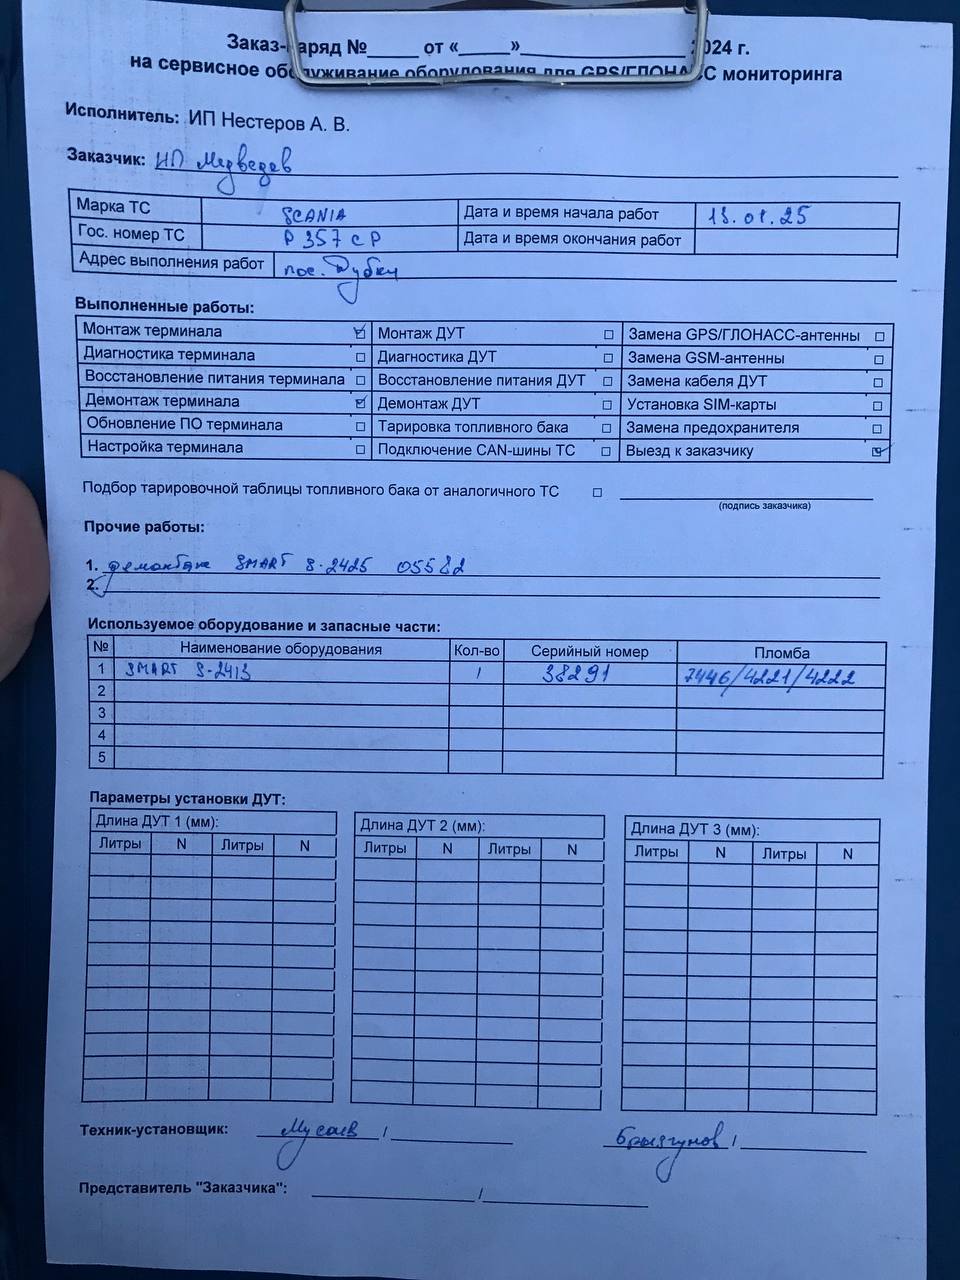 Заказ-наряд №_____ от «_____»________________ 2024 г.
на сервисное обслуживание оборудования для GPS/ГЛОНАСС мониторинга
Исполнитель: ИП Нестеров А. В.
Заказчик: ИП Медведев
Марка ТС SCANIA Дата и время начала работ 13.01.25
Гос. номер ТС Р 357 С Р Дата и время окончания работ
Адрес выполнения работ пос. Дубки
Выполненные работы:
Монтаж терминала ☑ Монтаж ДУТ ☐ Замена GPS/ГЛОНАСС-антенны ☐
Диагностика терминала ☐ Диагностика ДУТ ☐ Замена GSM-антенны ☐
Восстановление питания терминала ☐ Восстановление питания ДУТ ☐ Замена кабеля ДУТ ☐
Демонтаж терминала ☑ Демонтаж ДУТ ☐ Установка SIM-карты ☐
Обновление ПО терминала ☐ Тарировка топливного бака ☐ Замена предохранителя ☐
Настройка терминала ☐ Подключение CAN-шины ТС ☐ Выезд к заказчику ☑
Подбор тарировочной таблицы топливного бака от аналогичного ТС ☐
(подпись заказчика)
Прочие работы:
1. демонтаж SMART S-2425 05582
2.
Используемое оборудование и запасные части:
№ Наименование оборудования Кол-во Серийный номер Пломба
1 SMART S-2413 1 38291 7446/4221/4222
2
3
4
5
Параметры установки ДУТ:
Длина ДУТ 1 (мм): Длина ДУТ 2 (мм): Длина ДУТ 3 (мм):
Литры N Литры N Литры N Литры N Литры N Литры N
Техник-установщик: Мусаев / Брызгунов /
Представитель "Заказчика": /